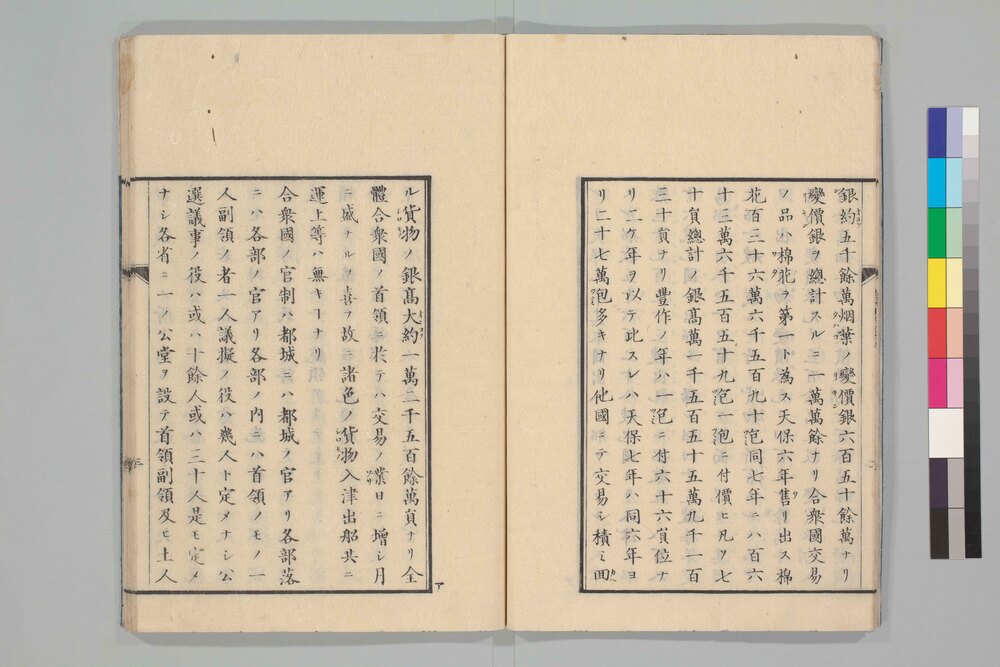 銀約五千餘萬烟葉ノ變價銀六百五十餘萬ナリ
變價銀ヲ總計スルニ一萬萬餘ナリ合衆國交易
ノ品ハ棉花ヲ第一ト為ス天保六年售リ出ス棉
花百三十六萬六千五百九十包同七年ニハ百六
十三萬六千五百五十九包一包ニ付價ヒ凡ソ七
十員總計ノ銀髙萬一千五百五十五萬九千一百
三十員ナリ豐作ノ年ハ一包ニ付六十六員位ナ
リ二ケ年ヲ以テ此スレハ天保七年ハ同六年ヨ
リ二十七萬包多キナリ他國ニテ交易シ積ミ回
ル貨物ノ銀髙大約一萬二千五百餘萬員ナリ全
體合衆國ノ首領ニ於テハ交易ノ業日ニ增シ月
ニ盛ナルヲ喜フ故ニ諸色ノ貨物入津出船共ニ
運上等ハ無キヿナリ
合衆國ノ官制ハ都城ニハ都城ノ官アリ各部落
ニハ各部ノ官アリ各部ノ内ニハ首領ノモノ一
人副領ノ者一人議擬ノ役ハ幾人ト定メナシ公
選議事ノ役ハ或ハ十餘人或ハ三十人是モ定メ
ナシ各省ニ一ノ公堂ヲ設テ首領副領及ヒ土人